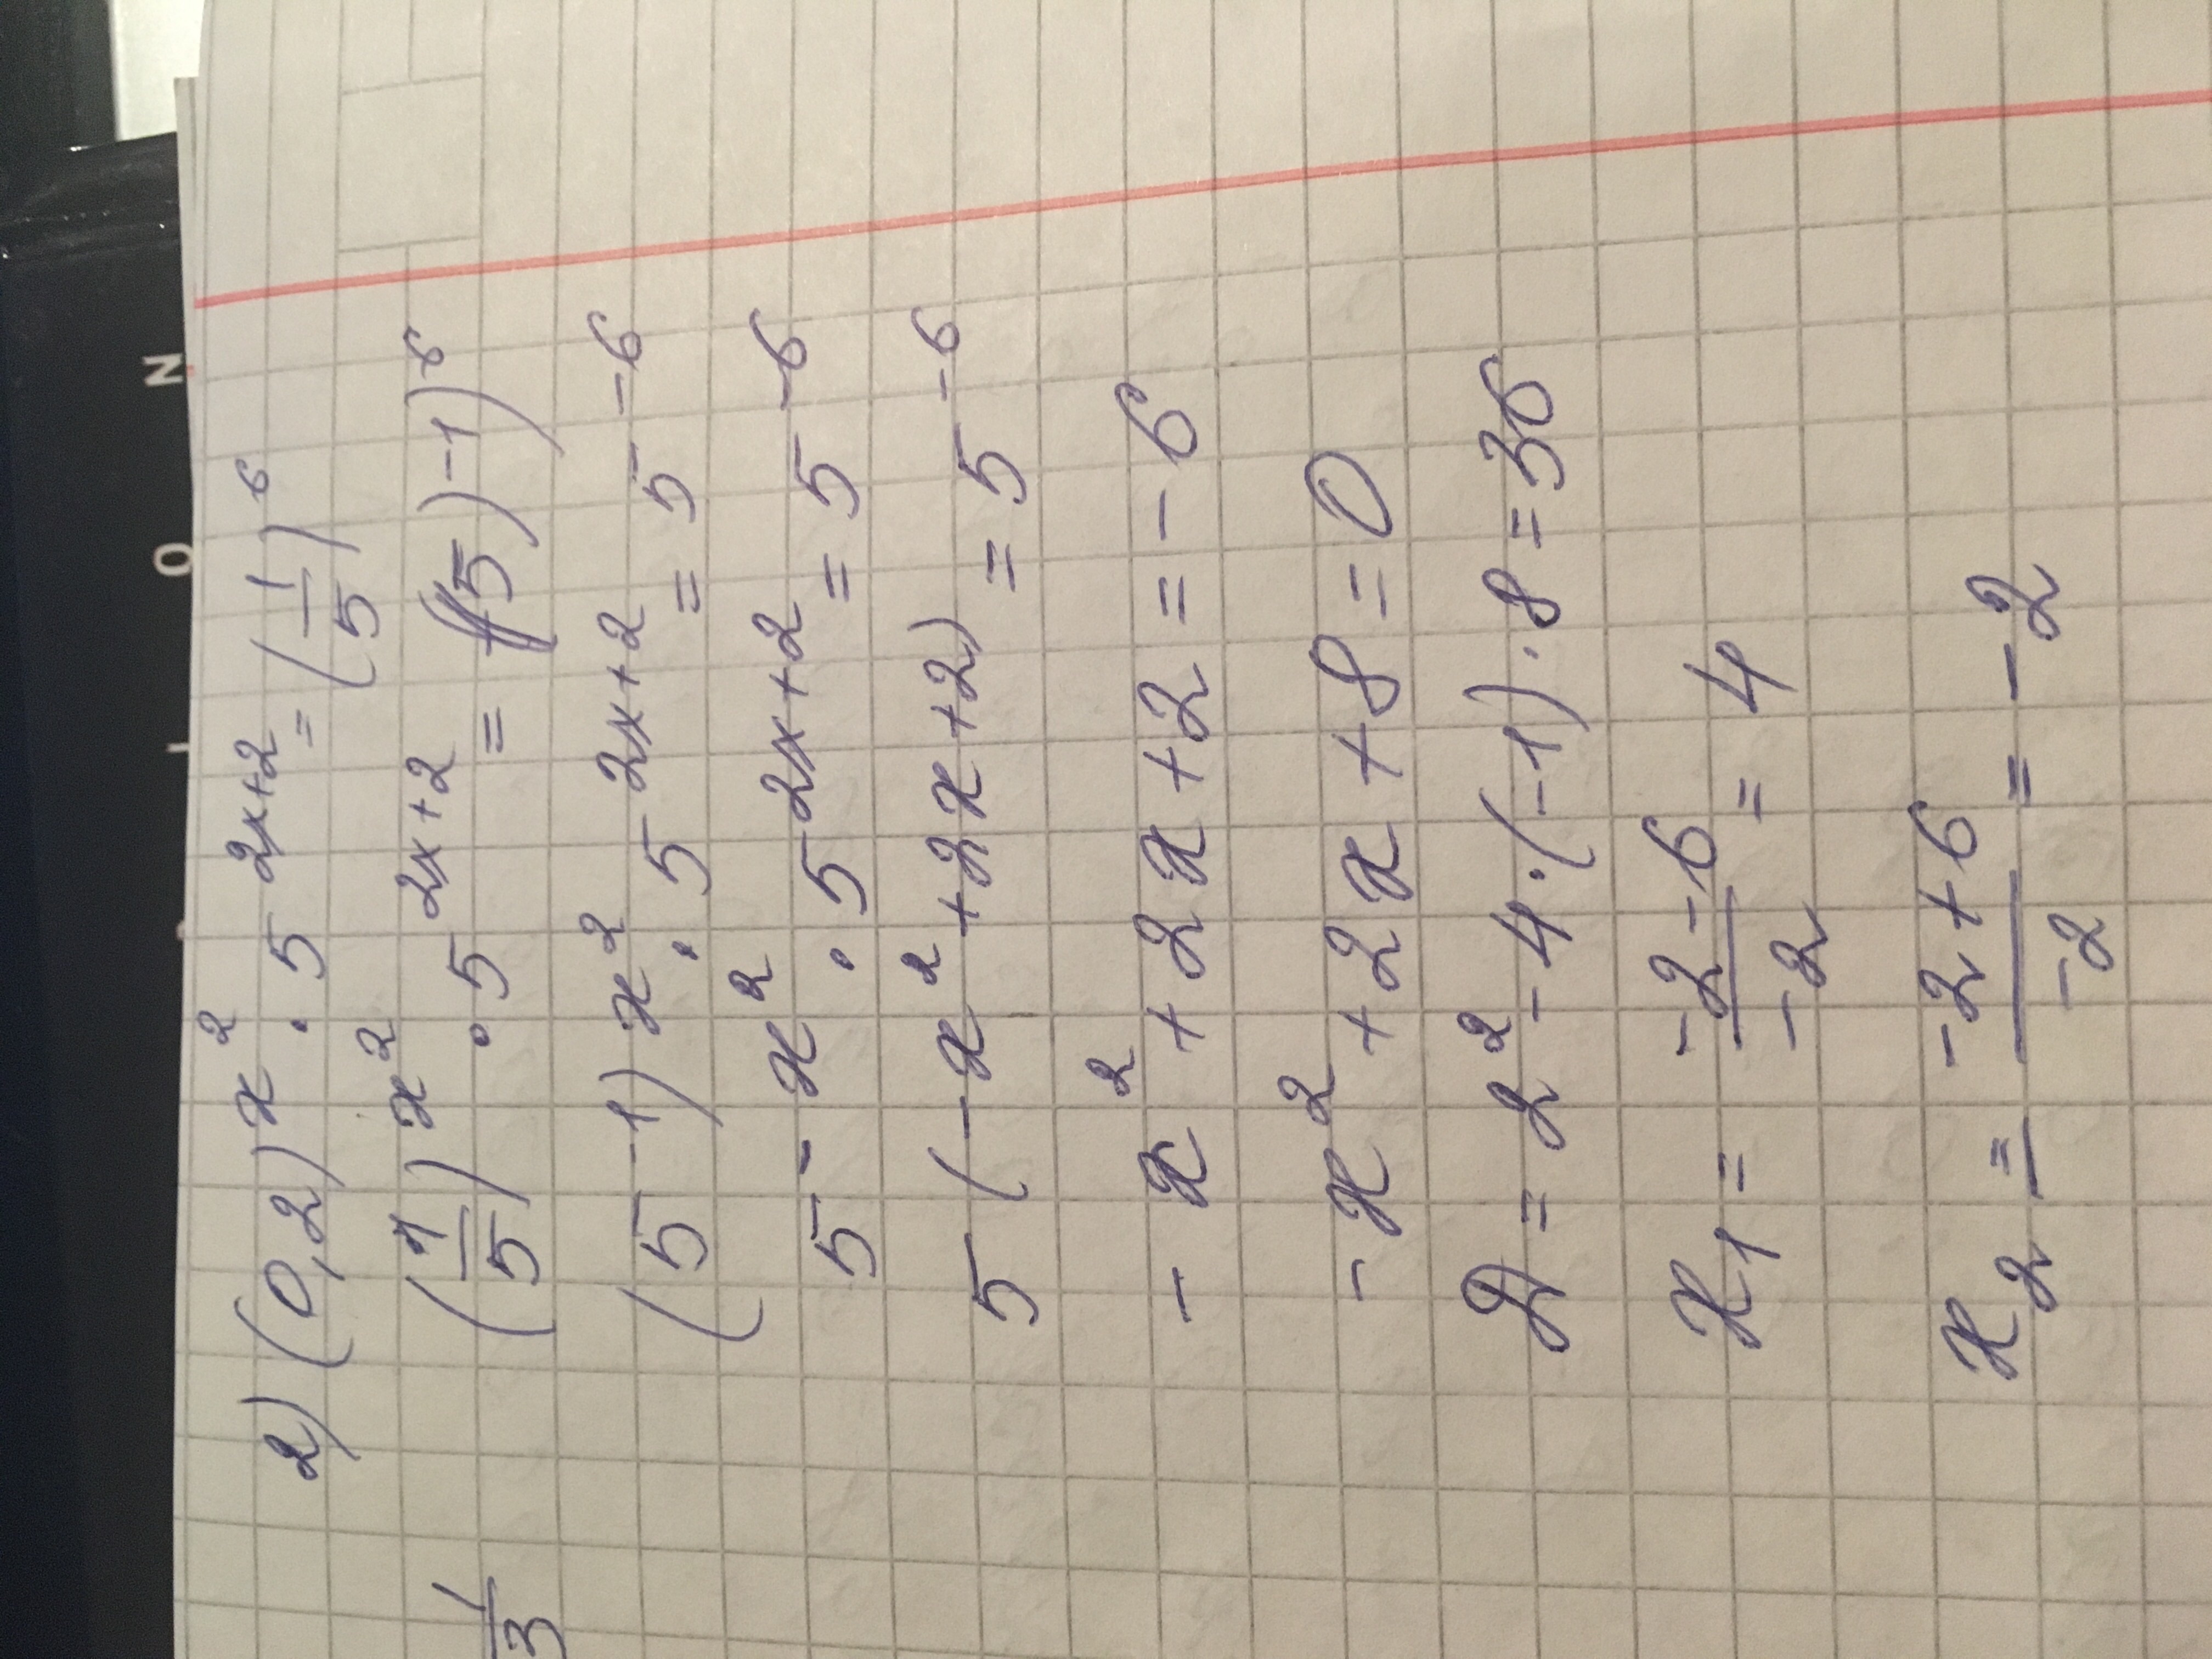 2) (0,2)^x^2 · 5^2x+2 = (1/5)^6
(1/5)^x^2 · 5^2x+2 = ((5)^-1)^6
(5^-1)^x^2 · 5^2x+2 = 5^-6
5^-x^2 · 5^2x+2 = 5^-6
5^(-x^2+2x+2) = 5^-6
-x^2+2x+2=-6
-x^2+2x+8=0
D=2^2-4·(-1)·8=36
x_1 = -2-6/-2 = 4
x_2 = -2+6/-2 = -2
1/3
N
O